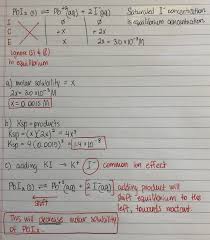 PbI₂ (s) ⇌ Pb⁺²(aq) + 2I⁻(aq)
Saturated I⁻ concentration
is equilibrium concentration
I ∅ ∅
C +x +x
E x 2x = 3.0 × 10⁻³ M
Ignore (s) & (l)
in equilibrium
a) molar solubility = x
2x = 3.0 × 10⁻³ M
x = 0.0015 M
b) Ksp = products
Ksp = (x)(2x)² = 4x³
Ksp = 4(0.0015)³ = 1.4 × 10⁻⁸
c) adding KI → K⁺ I⁻ common ion effect
PbI₂ (s) ⇌ Pb⁺²(aq) + 2I⁻(aq)
adding product will
shift equilibrium to the
left, towards reactant.
shift
This will decrease molar solubility
of PbI₂.